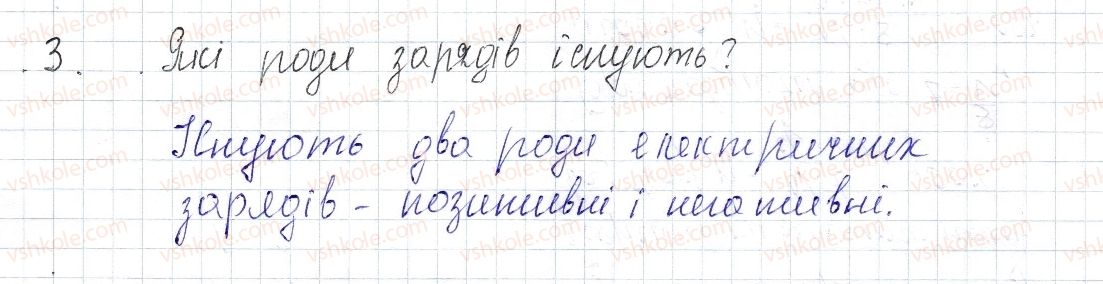 3. Які роди зарядів існують?
Існують два роди електричних
зарядів - позитивні і негативні.